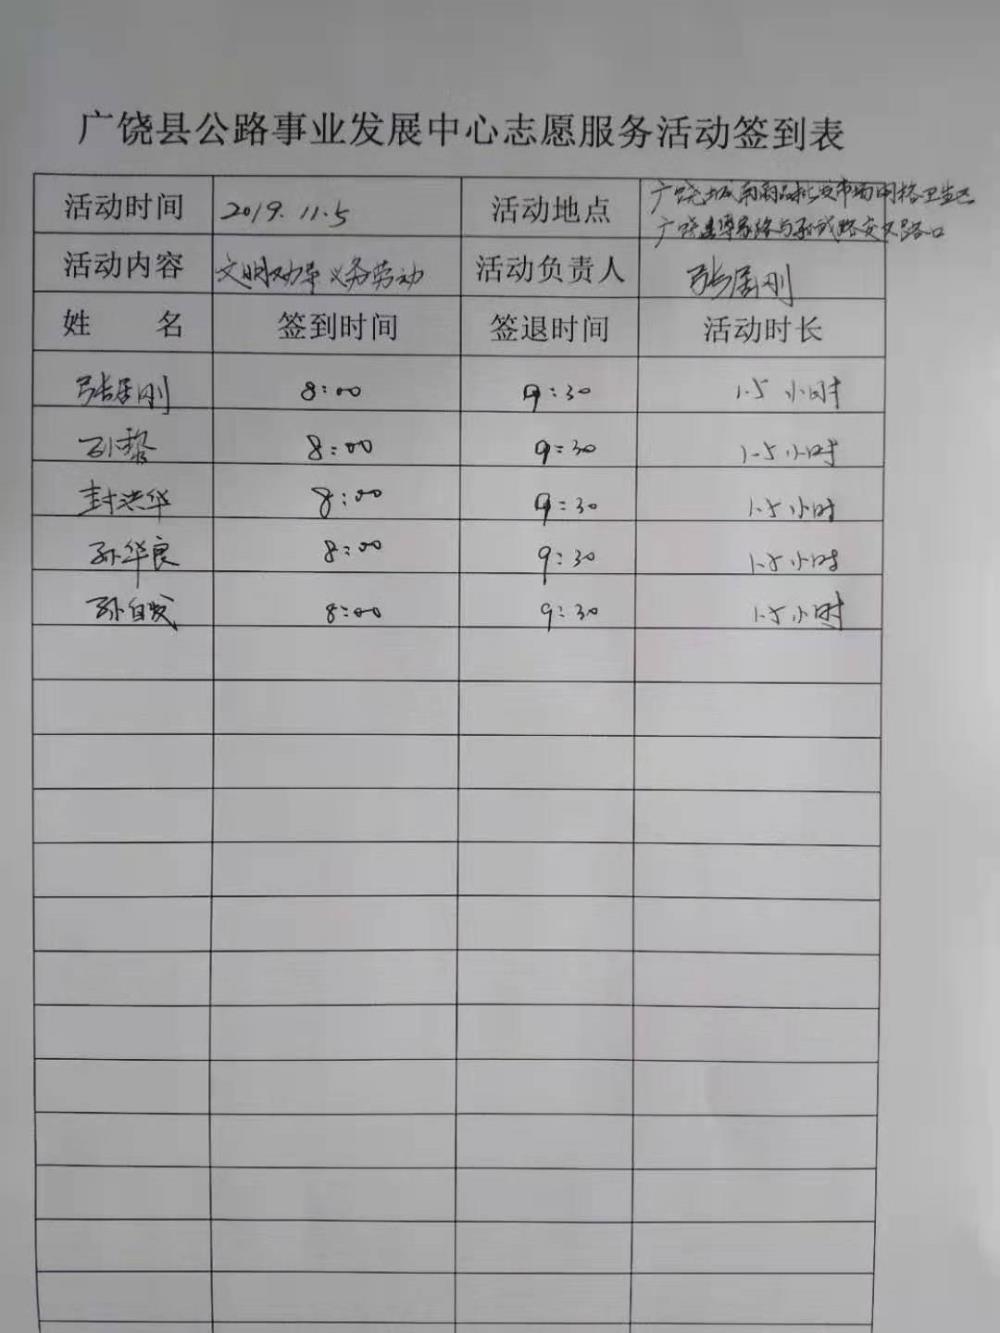 广饶县公路事业发展中心志愿服务活动签到表
活动时间 2019.11.5 活动地点 广饶城南商品批发市场网格卫生区
广饶县 路与孙武路交叉路口
活动内容 文明劝导 义务劳动 活动负责人 张居刚
姓 名 签到时间 签退时间 活动时长
张居刚 8:00 9:30 1.5小时
孙黎 8:00 9:30 1.5小时
封洪华 8:00 9:30 1.5小时
孙华良 8:00 9:30 1.5小时
孙自发 8:00 9:30 1.5小时